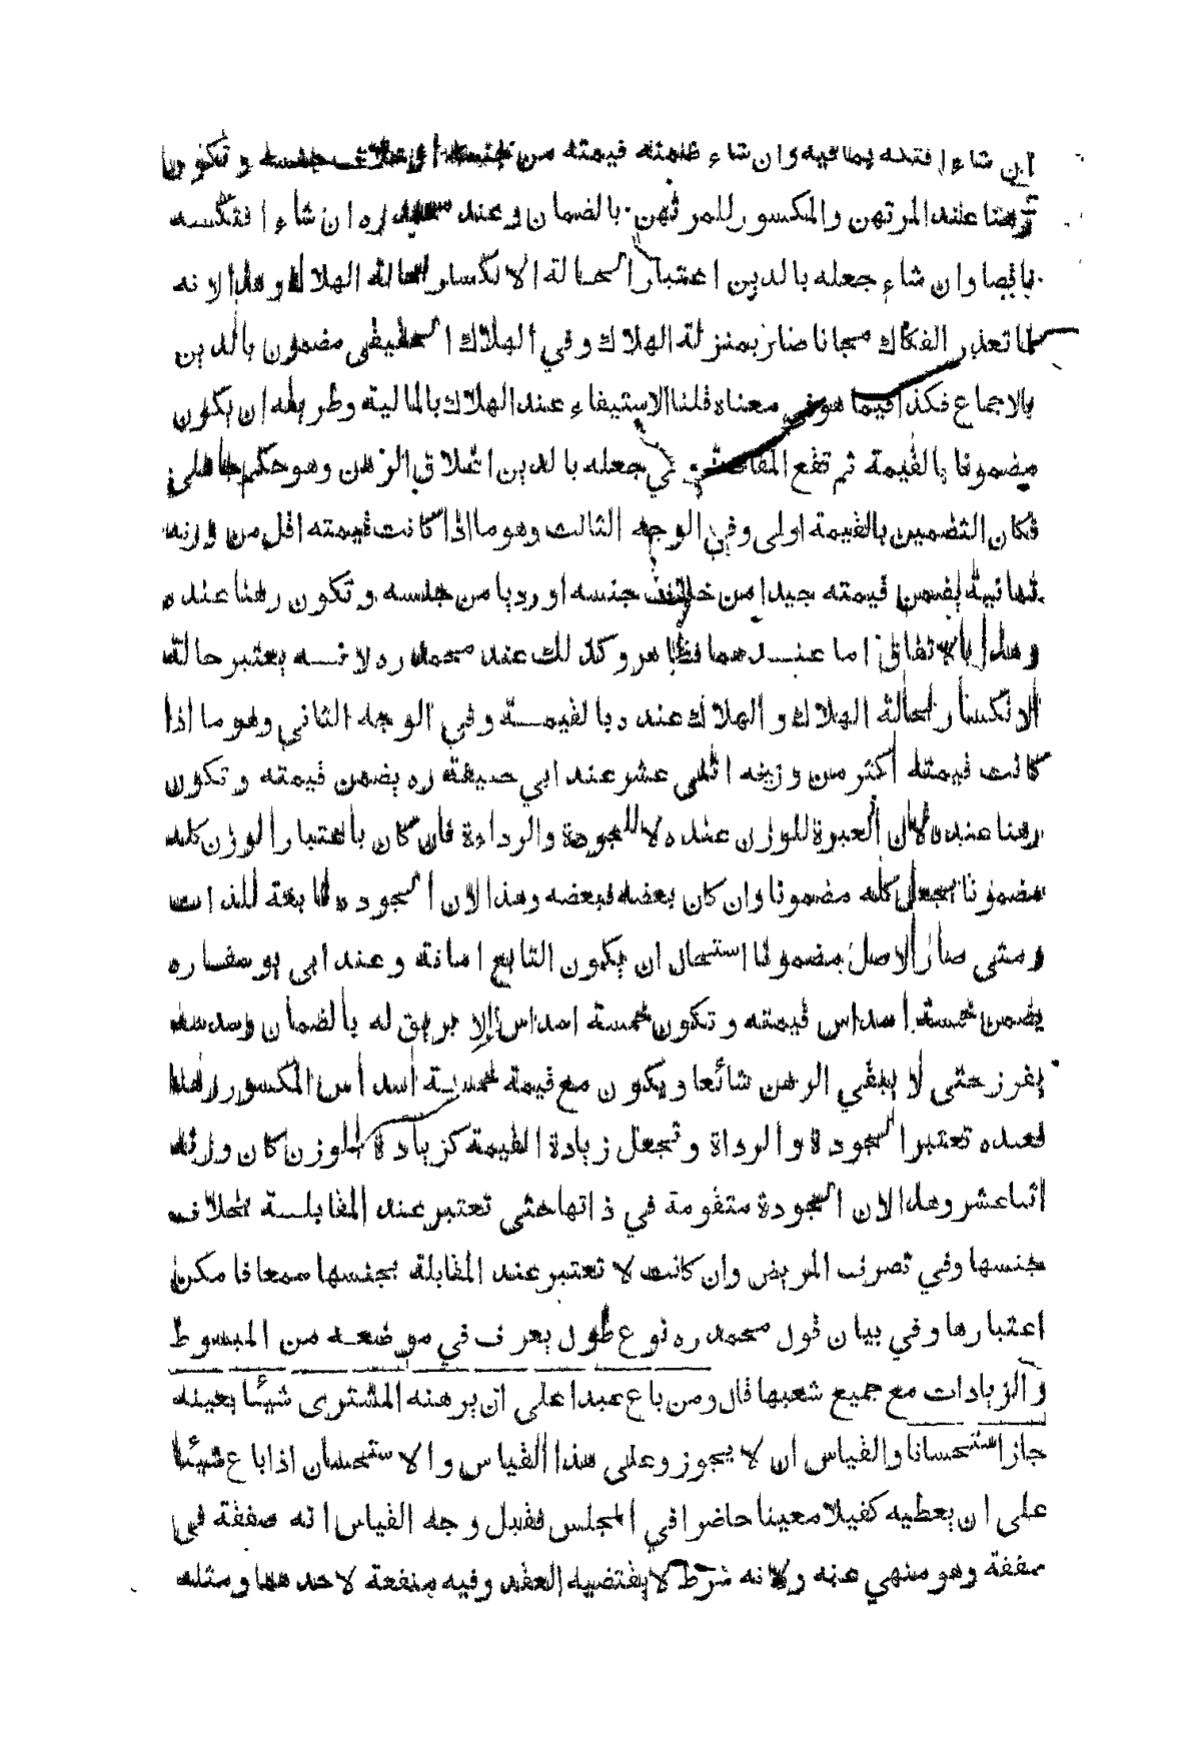 ان شاء افتكه بما فيه وان شاء ضمنه قيمته من جنسه او خلاف جنسه وتكون
رهنا عند المرتهن والمكسور للمرتهن بالضمان وعند محمد ره ان شاء افتكه
ناقصا وان شاء جعله بالدين اعتبارا لحالة الانكسار بحالة الهلاك وهذا لانه
لما تعذر الفكاك مجانا صار بمنزلة الهلاك وفي الهلاك الحقيقي مضمون بالدين
بالاجماع فكذا فيما هو في معناه قلنا الاستيفاء عند الهلاك بالمالية وطريقه ان يكون
مضمونا بالقيمة ثم تقع المقاصة في جعله بالدين اغلاق الرهن وهو حكم جاهلي
فكان التضمين بالقيمة اولى وفي الوجه الثالث وهو ما اذا كانت قيمته اقل من وزنه
ثمانية يضمن قيمته جيدا من خلاف جنسه او رديا من جنسه وتكون رهنا عنده
وهذا بالاتفاق اما عندهما فظاهر وكذلك عند محمد ره لانه يعتبر حالة
الانكسار بحالة الهلاك والهلاك عنده بالقيمة وفي الوجه الثاني وهو ما اذا
كانت قيمته أكثر من وزنه اثنى عشر عند ابي حنيفة ره يضمن قيمته وتكون
رهنا عنده لان العبرة للوزن عنده لا للجودة والرداءة فان كان باعتبار الوزن كله
مضمونا يجعل كله مضمونا وان كان بعضه فبعضه وهذا لان الجودة تابعة للذات
ومتى صار الاصل مضمونا استحال ان يكون التابع امانة وعند ابي يوسف ره
يضمن خمسة اسداس قيمته وتكون خمسة اسداس الابريق له بالضمان وسدسه
يفرز حتى لا يبقي الرهن شائعا ويكون مع قيمة خمسة أسداس المكسور رهنا
فعنده تعتبر الجودة والرداة وتجعل زيادة القيمة كزيادة الوزن كان وزنه
اثنا عشر وهذا لان الجودة متقومة في ذاتها حتى تعتبر عند المقابلة بخلاف
جنسها وفي تصرف المريض وان كانت لا تعتبر عند المقابلة بجنسها سمعا فامكن
اعتبارها وفي بيان قول محمد ره نوع طول يعرف في موضعه من المبسوط
والزيادات مع جميع شعبها قال ومن باع عبدا على ان يرهنه المشترى شيئا بعينه
جاز استحسانا والقياس ان لا يجوز وعلى هذا القياس والاستحسان اذا باع شيئا
على ان يعطيه كفيلا معينا حاضرا في المجلس فقبل وجه القياس انه صفقة في
صفقة وهو منهي عنه ولانه شرط لا يقتضيه العقد وفيه منفعة لاحدهما ومثله